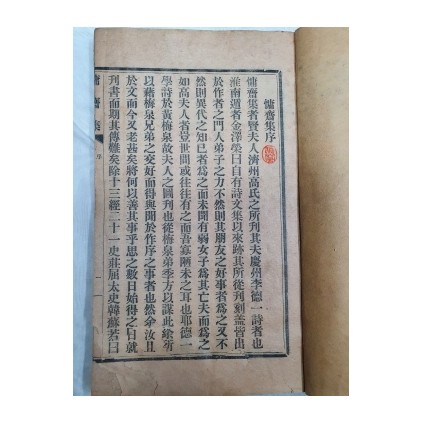 慵齋集序
慵齋集者賢夫人濟州高氏之所刊其夫慶州李德一詩者也
淮南遯者金澤榮曰自有詩文集以來跡其所從刊刻蓋皆出
於作者之門人弟子之力不然則其朋友之好事者爲之又不
然則異代之知已者爲之而未聞有弱女子爲其亡夫而爲之
如高夫人者豈世間或往往有之而吾寡陋未之耳也耶德一
學詩於黃梅泉故夫人之圖刊也從梅泉弟季方以謀此絫所
以藉梅泉兄弟之交好而得與聞於作序之事者也然余汝且
於文而今又老甚矣將何以善其事乎思之數日始得之曰就
刊書而期其傳難矣除十三經二十一史莊屈太史韓蘇若曰
慵齋集
序
一